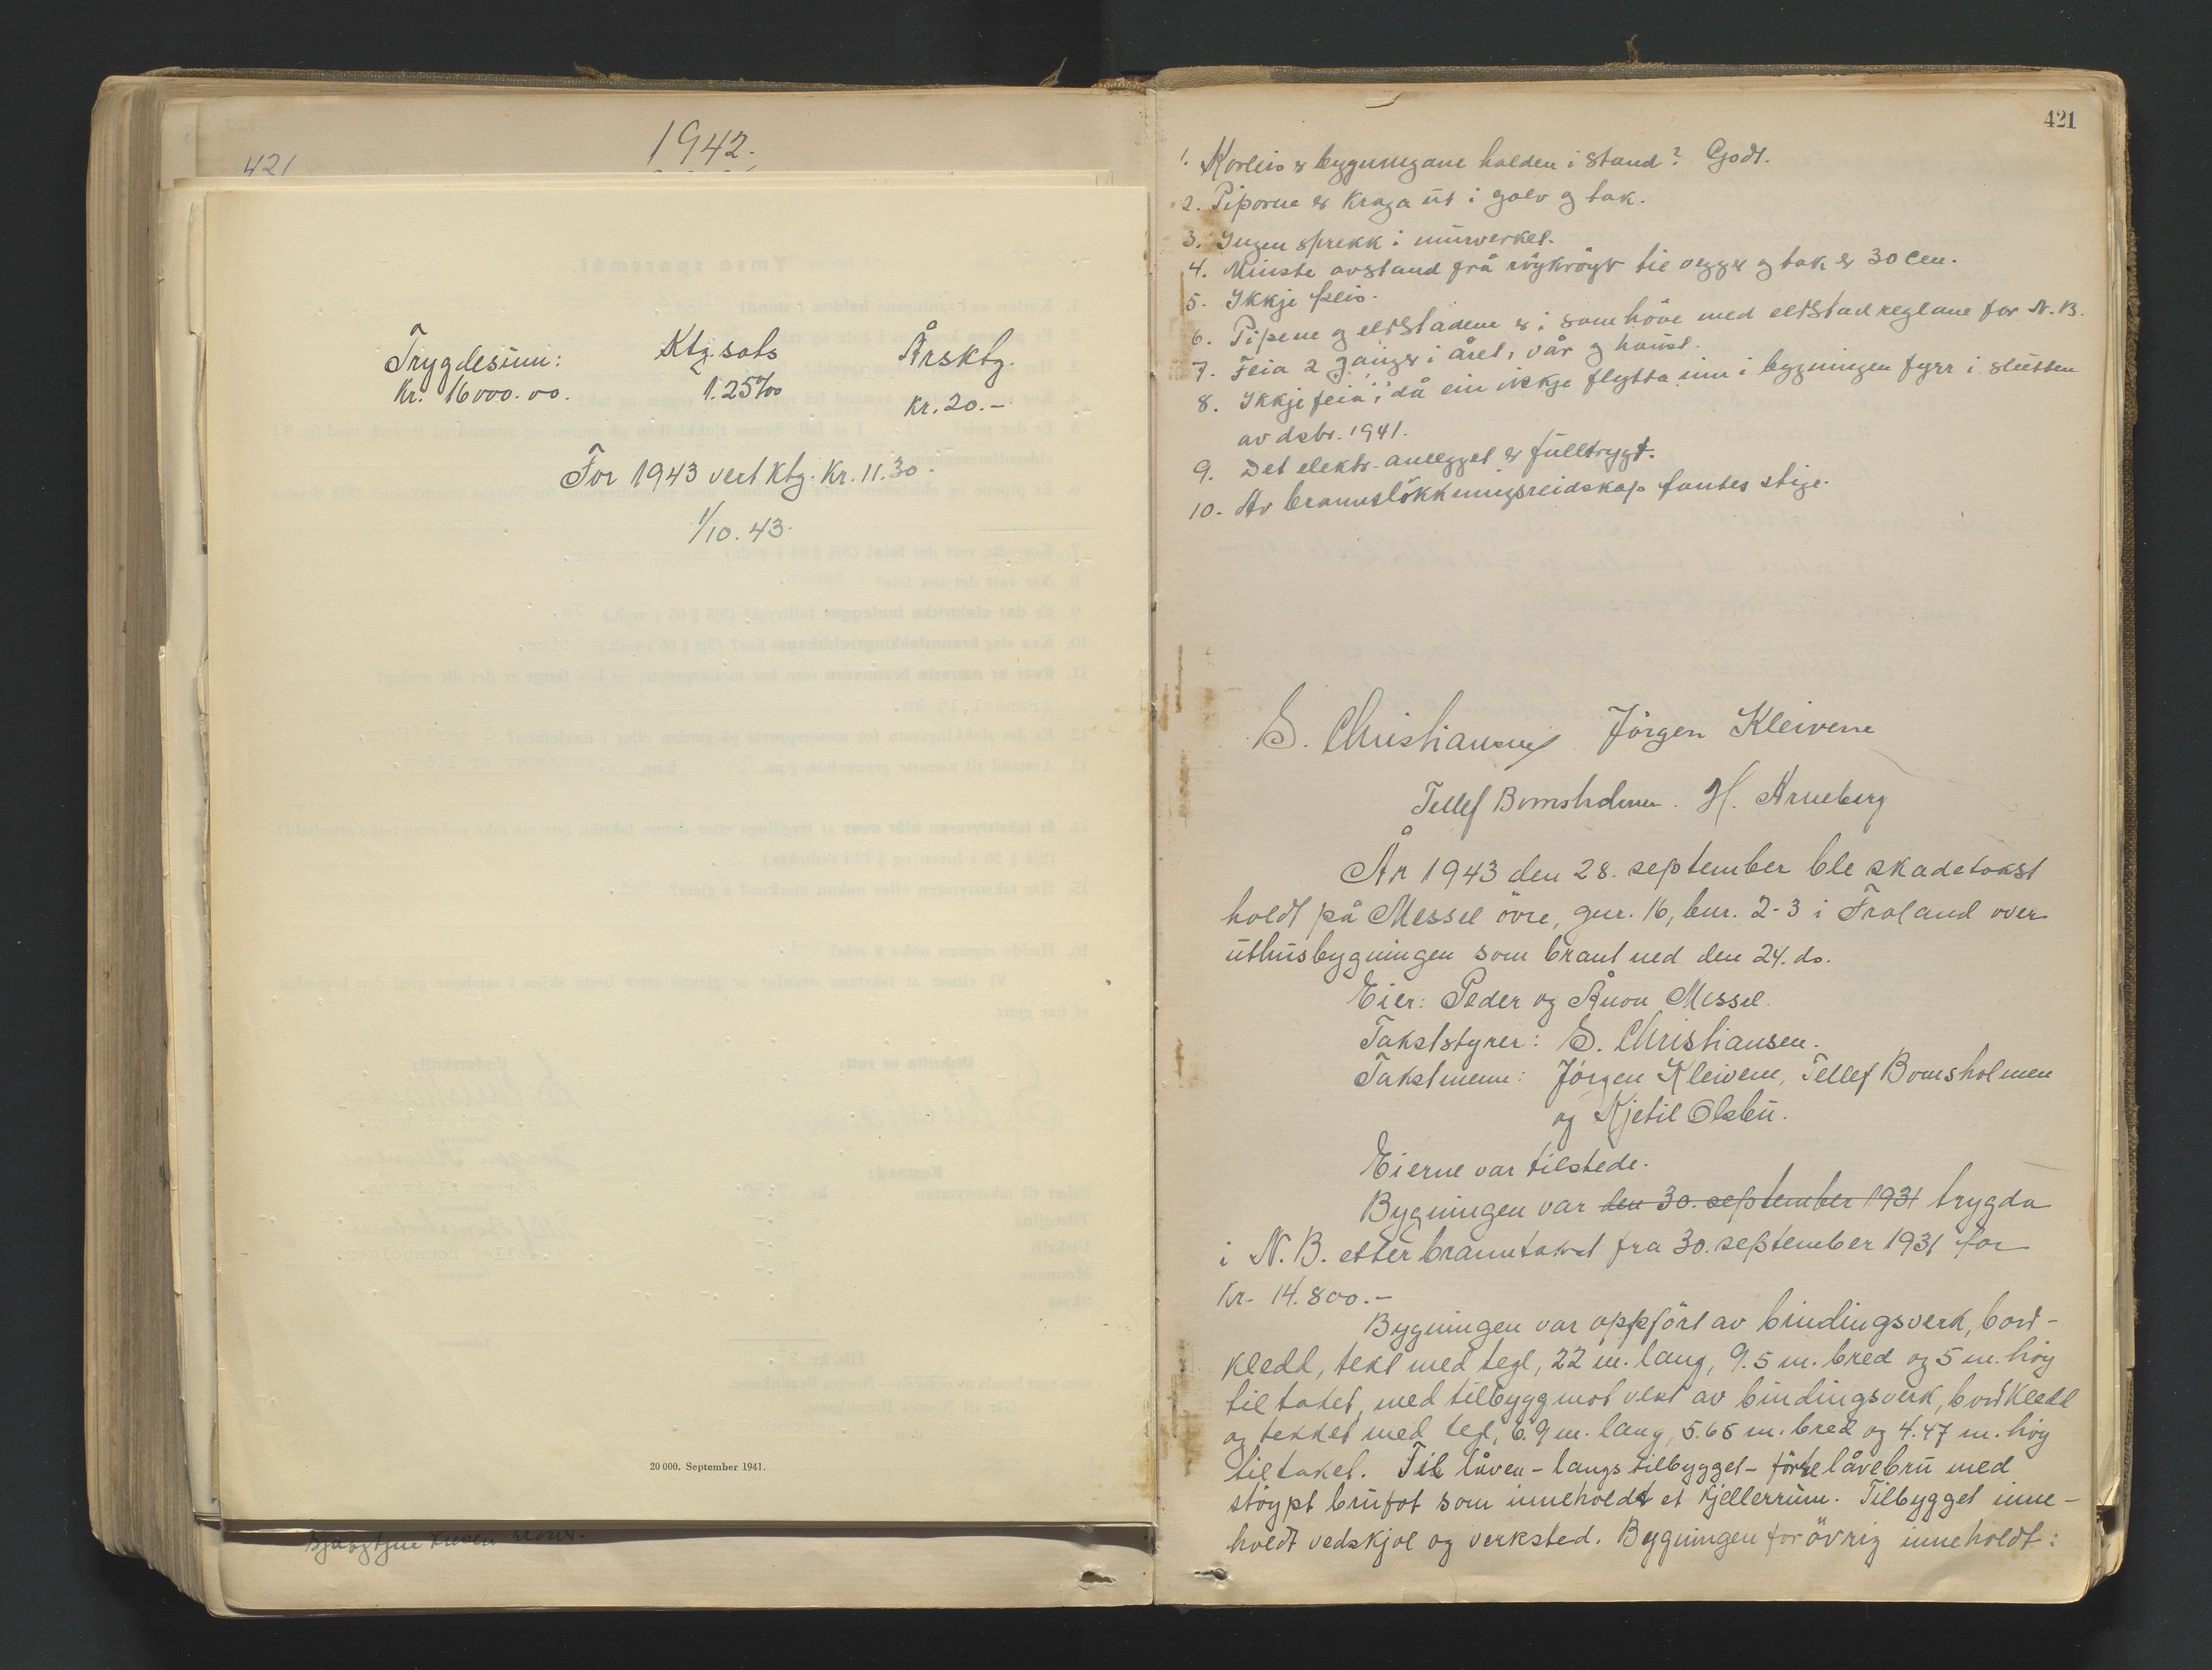 1942.
421
Trygdesum:
Kr. 16000.00.
Ktg. sats
1.25‰
Årsktg.
Kr. 20.-
For 1943 vert ktg. Kr. 11.30.
1/10. 43.
20 000. September 1941.
421
1. Korleis er bygningane halden i stand? Godt.
2. Piporne er kraga ut i golv og tak.
3. Ingen sprekk i murverket.
4. Minste avstand frå röykröyr til vegger og tak er 30 cm.
5. Ikkje peis.
6. Pipene og eldstadene er i samhöve med eldstadreglane for N.B.
7. Feia 2 ganger i året, vår og haust.
8. Ikkje feia, då ein ikkje flytta inn i bygningen fyrr i slutten
av dsbr. 1941.
9. Det elektr. anlegget er fulltrygt.
10. Av brannslökkningsreidskap fantes stige.
S. Christiansen Jörgen Kleivene
Tellef Bomsholmen. H. Arneberg
År 1943 den 28. september ble skadetakst
holdt på Messel övre, gnr. 16, bnr. 2-3 i Froland over
uthusbygningen som brant ned den 24. ds.
Eier: Peder og Anon Messel.
Takststyrer: S. Christiansen.
Takstmenn: Jörgen Kleivene, Tellef Bomsholmen
og Kjetil Olsbu.
Eierne var tilstede.
Bygningen var den 30. september 1931 trygda
i N.B. etter branntakst fra 30. september 1931 for
Kr. 14.800.-
Bygningen var oppfört av bindingsverk, bord-
kledd, tekt med tegl, 22 m. lang, 9.5 m. bred og 5 m. höy
til taket, med tilbygg mot vest av bindingsverk, bordkledd
og tekket med tegl, 6.9 m. lang, 5.65 m. bred og 4.47 m. höy
til taket. Til låven - langs tilbygget - förte låvebru med
stöypt brufot som inneholdt et kjellerrum. Tilbygget inne-
holdt vedskjol og verksted. Bygningen for övrig inneholdt: